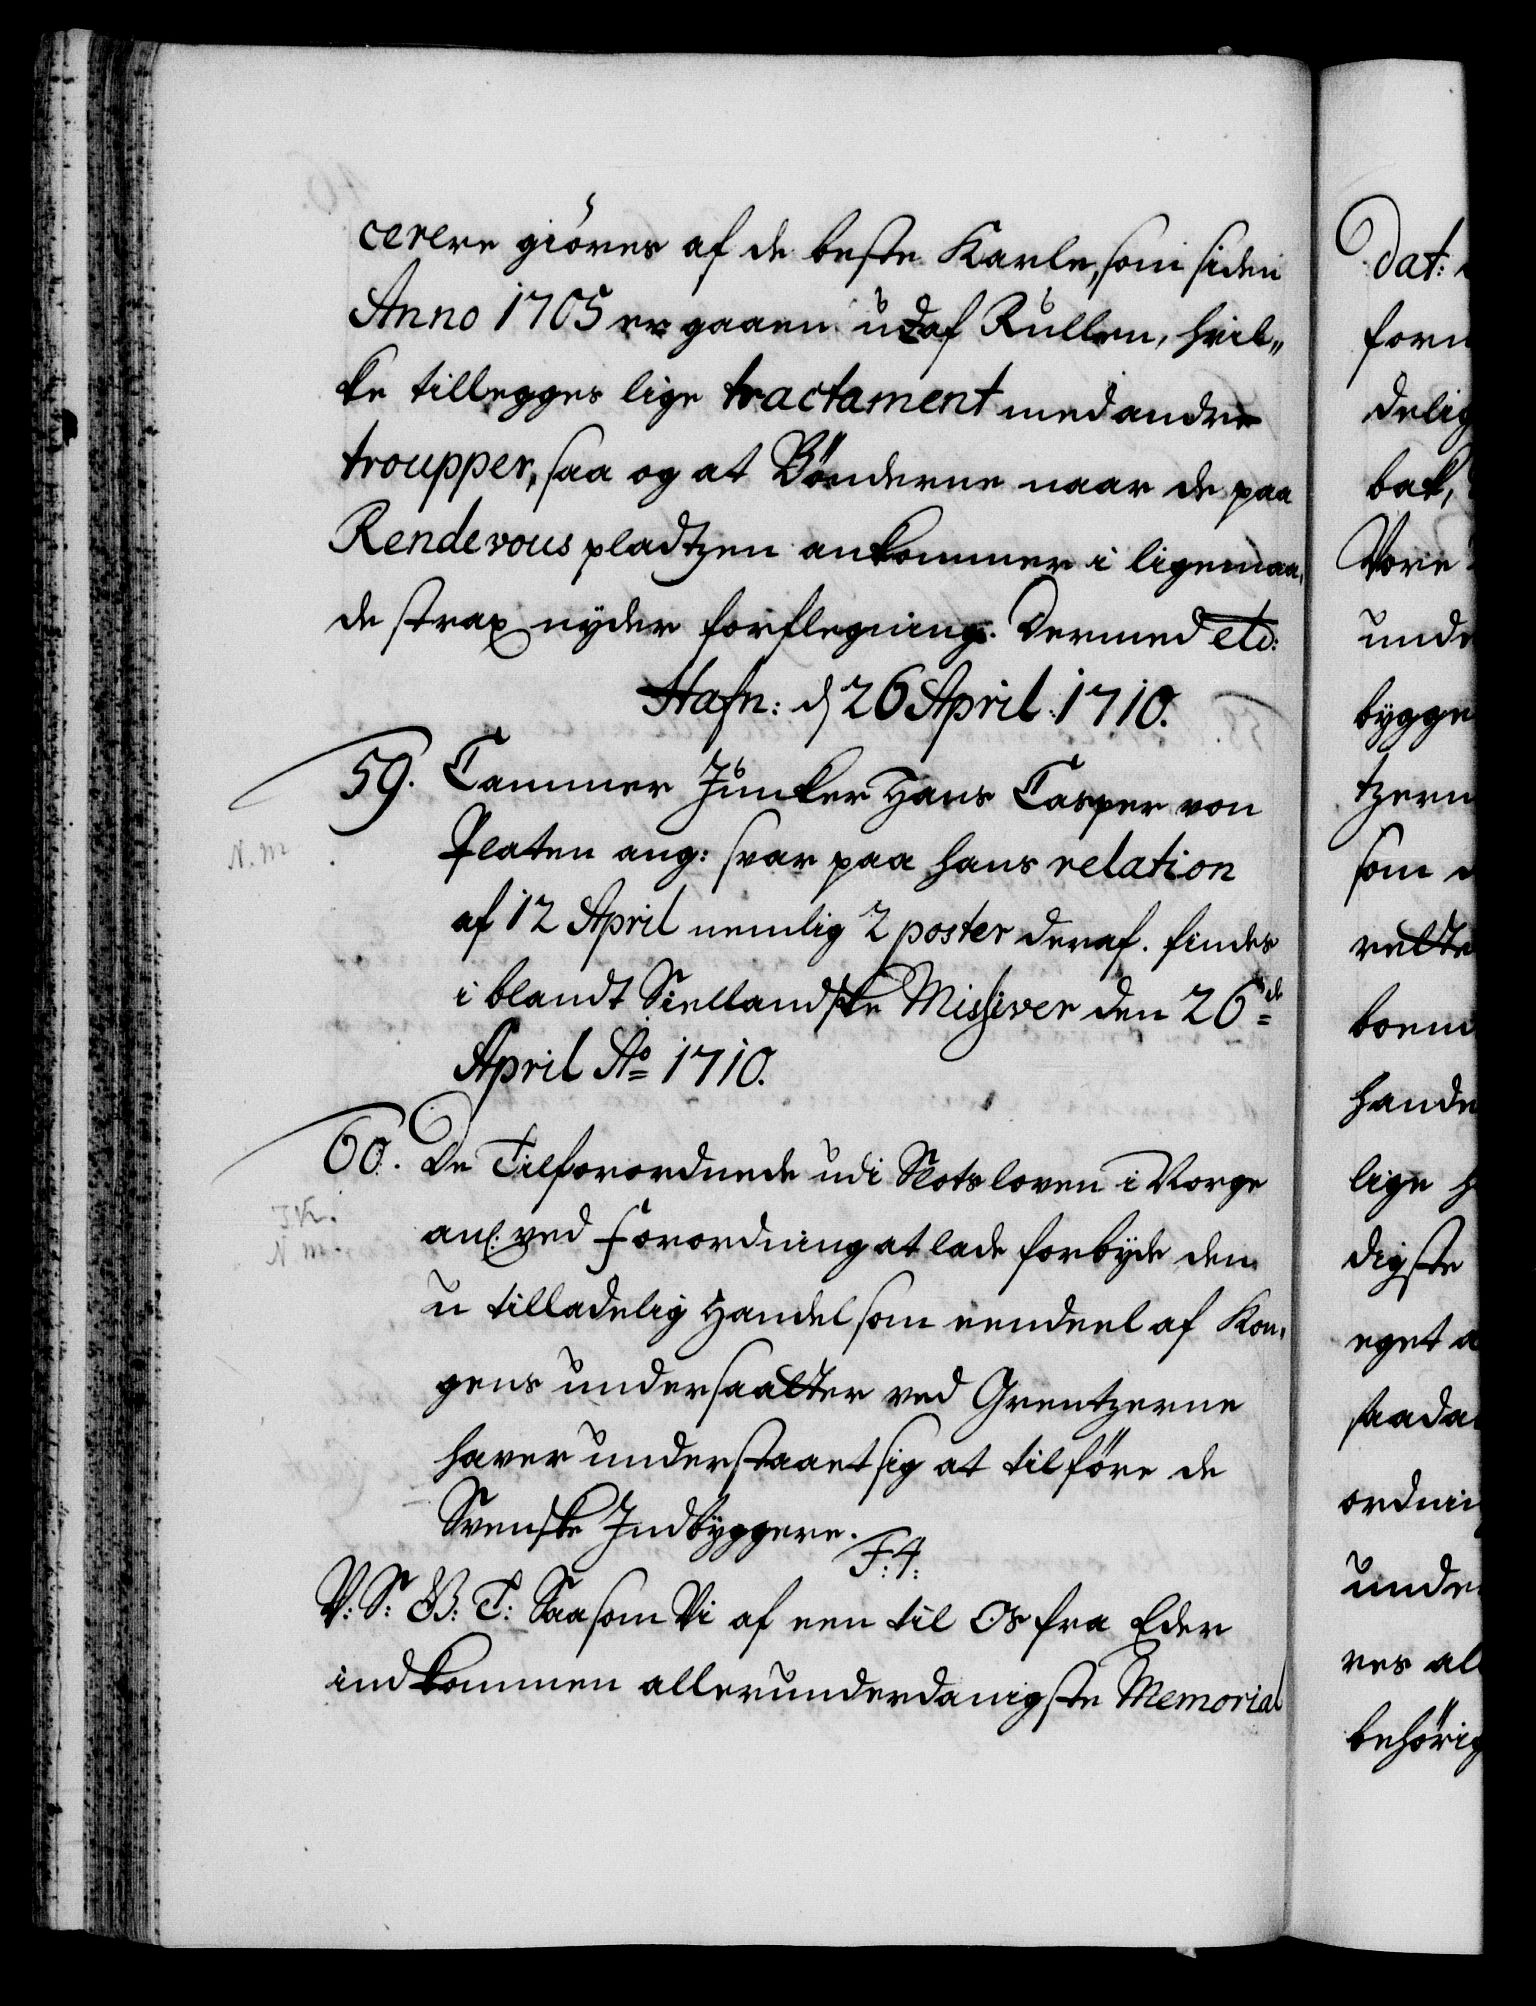 cerere giöres af de beste Karle, som siden
Anno 1705 er gaaen udaf Rullen, hvil„
ke tillegges lige tractament med andre
troupper, saa og at Bönderne naar de paa
Rendevous pladtzen ankommer i ligemaa,
de strax nyder forflegning. Dermed etc:
Hafn: d 26 April: 1710.
59. Cammer Juncker Hans Casper von
Platen ang: svar paa hans relation
N. m
af 12 April nemlig 2 poster deraf. findes
i blandt Siellandske Missiver den 26de
April Ao 1710.
60. De Tilforordnede udi Slotsloven i Norge
J K.
anl. ved Forordning at lade forbyde den
N m
u tilladelig Handel som eendeel af Kon,
gens undersaatter ved Grentzerne
haver understaaet sig at tilföre de
Svenske Indbyggere.
F: 4:
V: S: G: T: Saasom Vi af een til Os fra Eder
indkommen allerunderdanigste Memorial
Dat:
forn
delig
bak,
Vore
unde
bygge
tzern
som
boem
hande
lige h
digste
eget a
saada
ordnin
unde
res al
behörig